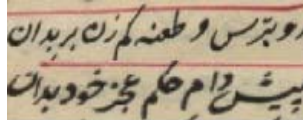 رو بترس و طعنه کم زن بر بدان
پیش دام حکم عجز خود بدان